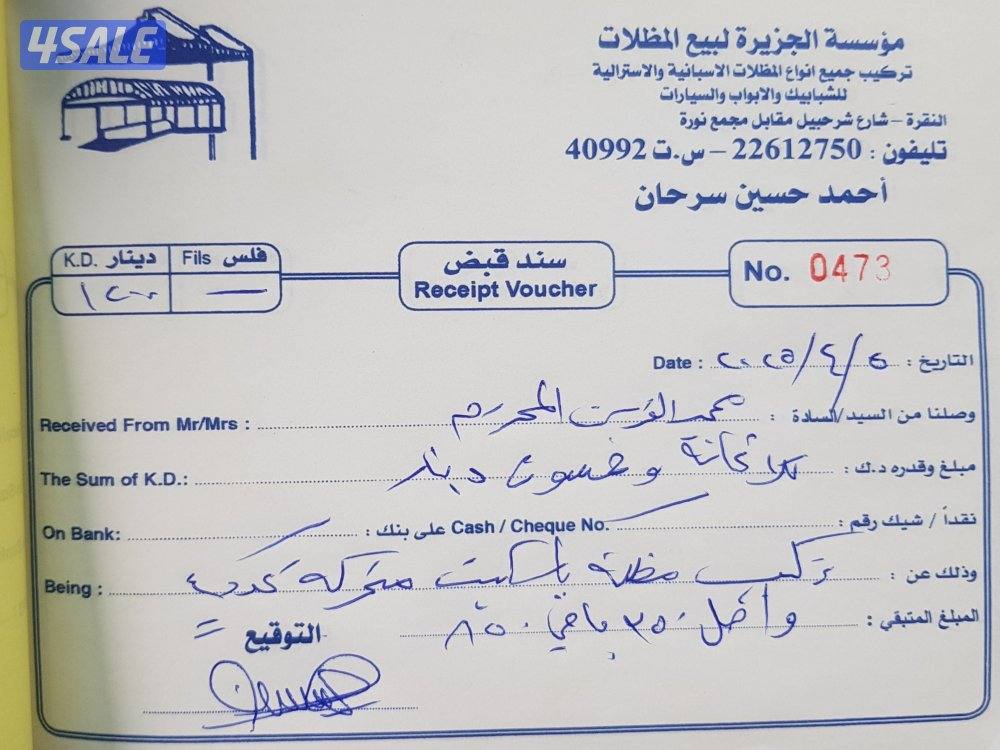 4SALE
مؤسسة الجزيرة لبيع المظلات
تركيب جميع انواع المظلات الاسبانية والاسترالية
للشبابيك والابواب والسيارات
النقرة – شارع شرحبيل مقابل مجمع نورة
تليفون : 22612750 – س.ت 40992
أحمد حسين سرحان
K.D. دينار Fils فلس
١٢٠٠
سند قبض
Receipt Voucher
No. 0473
التاريخ : ٢٠٢٥/٤/٥ Date :
وصلنا من السيد/السادة : محمد المحترم Received From Mr/Mrs :
مبلغ وقدره د.ك : ثلاثمائة وخمسون دينار The Sum of K.D.:
نقداً / شيك رقم : Cash / Cheque No. على بنك : On Bank:
وذلك عن : تركيب مظلة متحركة Being :
المبلغ المتبقي : واصل ٣٥٠ باقي ٨٥٠
التوقيع